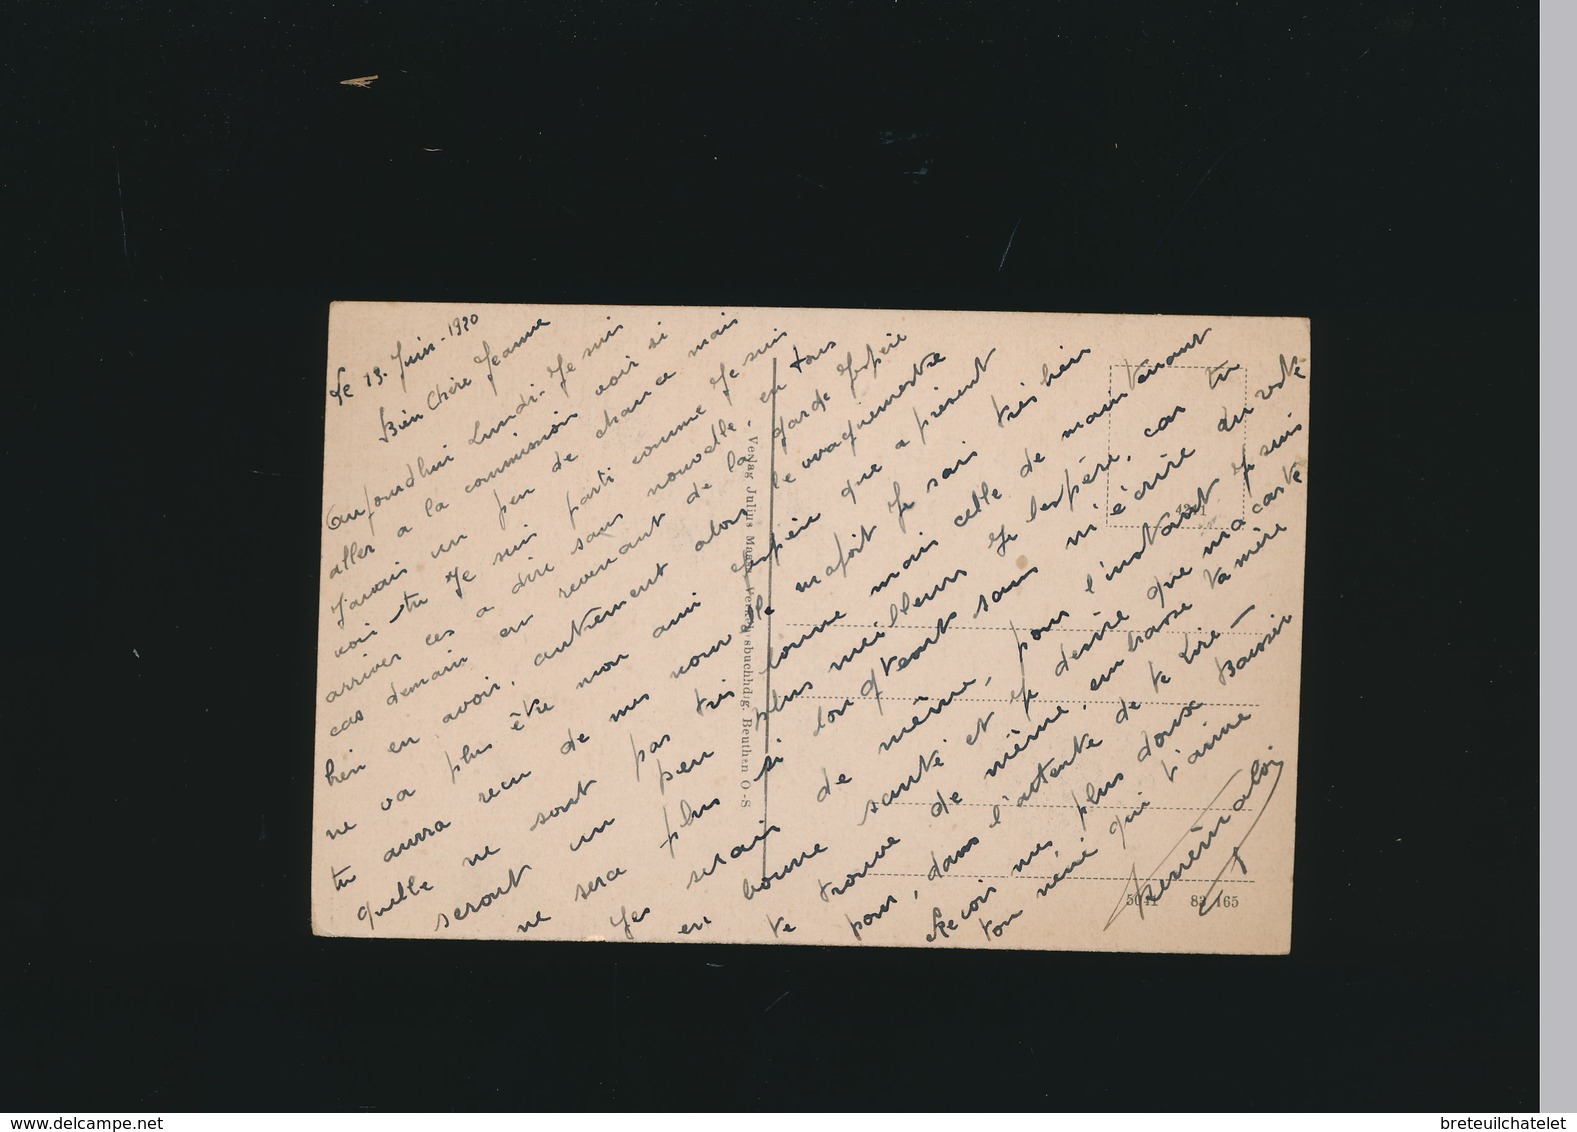 Le 13. Juin. 1920
Bien Chère Jeanne
Aujourdhui Lundi. Je suis
aller a la commission voir si
J'aurais un peu de chance mais
voit tu Je suis parti comme Je suis
arriver ces a dire sans nouvelle, en tous
cas demain en revenant de la garde J'espère
bien en avoir, autrement alors le vaguemestre
ne va plus être mon ami J'espère que a présent
tu aurra recu de mes nouvelle mafoit Je sais très bien
quelle ne sont pas très bonne mais celle de maintenant
seront un peu plus meilleurs Je l'espére, car tu
ne sera plus si longtemps sans m'écrire du reste
Jen serais de même, pour l'instant Je suis
en bonne santé et Je desire que ma carte
te trouve de même, embrasse ta mère
pour, dans l'attente de te Lire —
Recoir mes plus doux Baisser
ton néné qui t'aime
Verlag Julius Verlagsbuchhdlg. Beuthen O-S
5041 83 165
breteuilchatelet